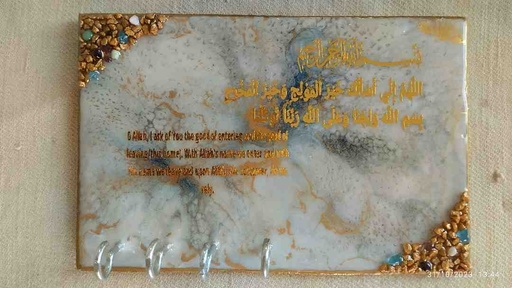 بسم الله الرحمن الرحيم
اللهم إني أسألك خير المولج وخير المخرج
بسم الله ولجنا وعلى الله ربنا توكلنا
O Allah, I ask of You the good of entering
leaving this home. With Allah's name we enter
name we leave and upon
rely.
31/10/2023 13:44